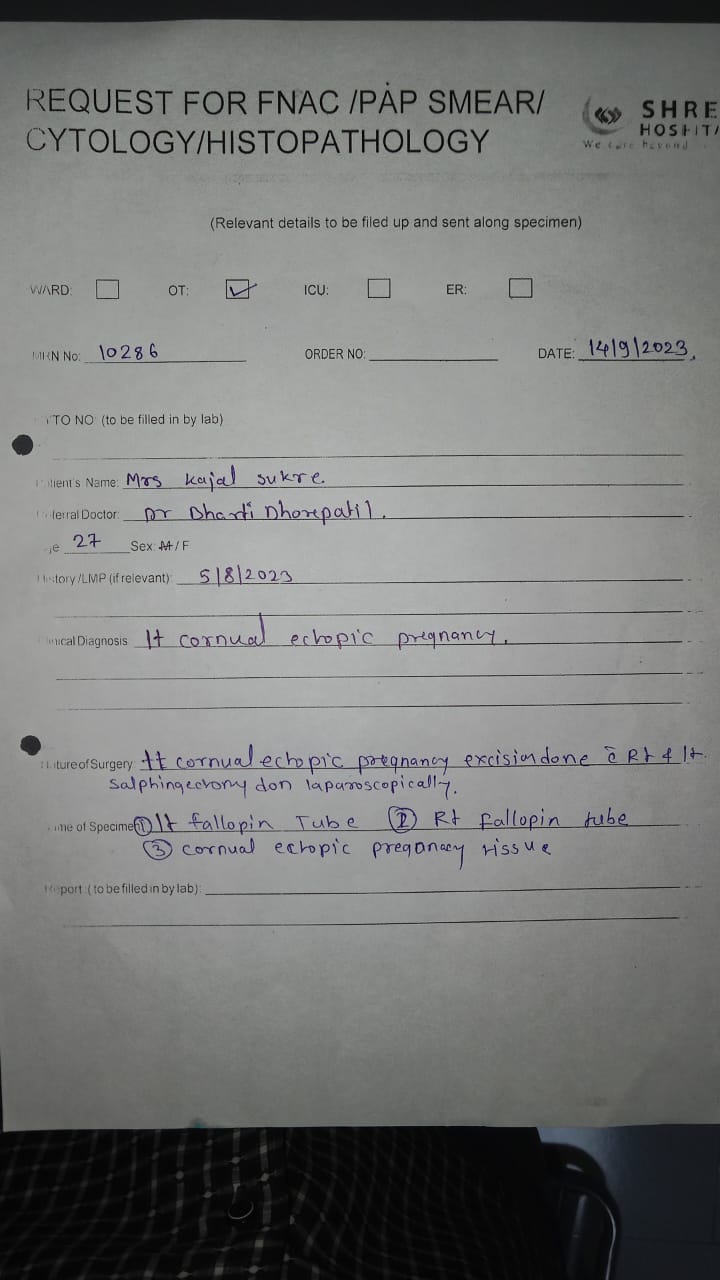 REQUEST FOR FNAC /PAP SMEAR/
CYTOLOGY/HISTOPATHOLOGY
SHRE
HOSPITA
We care beyond
(Relevant details to be filed up and sent along specimen)
WARD: OT: ICU: ER:
MRN No: 10286 ORDER NO: DATE: 14/9/2023,
TO NO (to be filled in by lab)
tient's Name: Mrs kajal sukre.
ferral Doctor: Dr Dharti Dhorepatil.
ge 27 Sex: M / F
History /LMP (if relevant): 5/8/2023
nical Diagnosis lt cornual ectopic pregnancy.
Nature of Surgery: lt cornual ectopic pregnancy excision done c̄ Rt & lt.
salphingectomy don laparoscopically.
me of Specimen ① lt fallopin Tube ② Rt fallopin tube
③ cornual ectopic pregnancy tissue
Report: (to be filled in by lab):